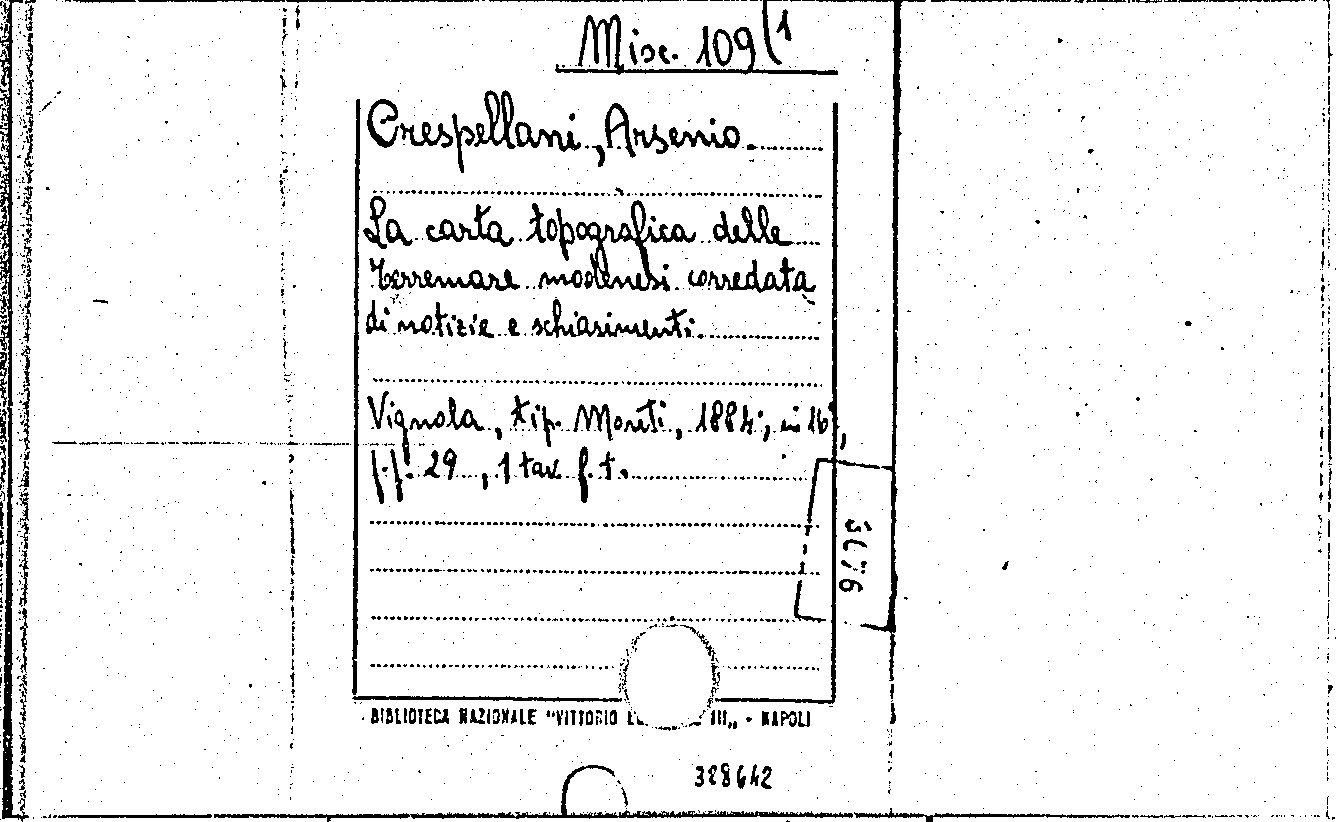 Misc. 109(1
Crespellani, Arsenio.
La carta topografica delle
terremare modenesi corredata
di notizie e schiarimenti.
Vignola, tip. Monti, 1884, in 16°,
pp. 29, 1 tav. f. t.
BIBLIOTECA NAZIONALE "VITTORIO III„ - NAPOLI
328642